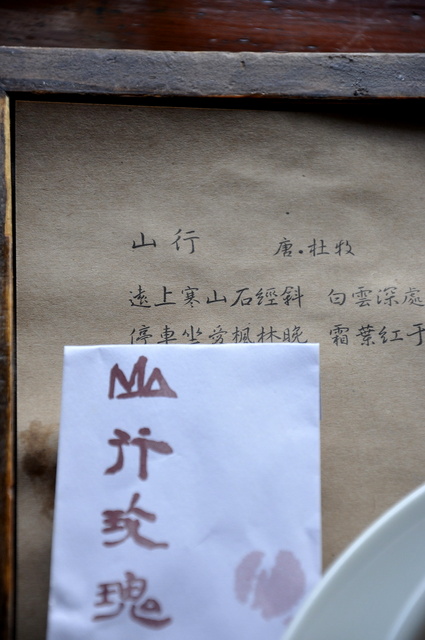 山行 唐·杜牧
遠上寒山石經斜 白雲深處
停車坐愛楓林晚 霜葉红于
山行玫瑰